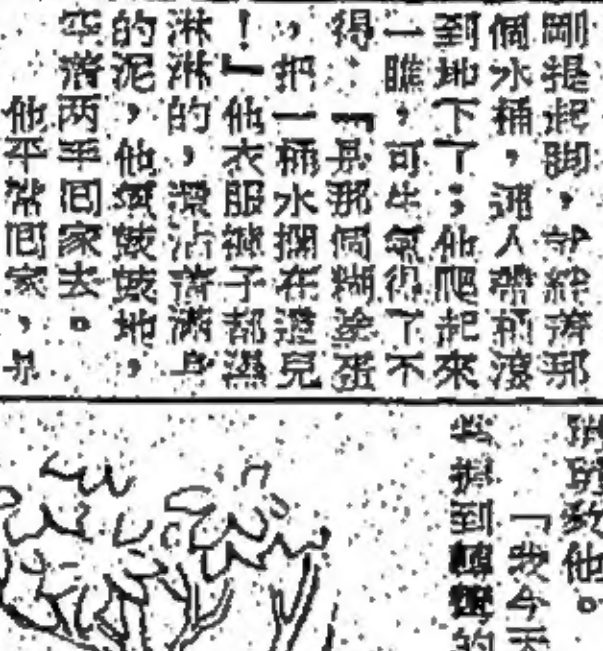 剛提起脚，就絆着那
個水桶，連人帶桶滾
到地下了；他爬起來
一瞧，可生氣得了不
得：「是那個糊塗蛋
，把一桶水擱在這兒
！」他衣服褲子都濕
淋淋的，還沾着滿身
的泥，他氣鼓鼓地，
空着两手囘家去。
他平常囘家，是
他。
「我今天
到 的